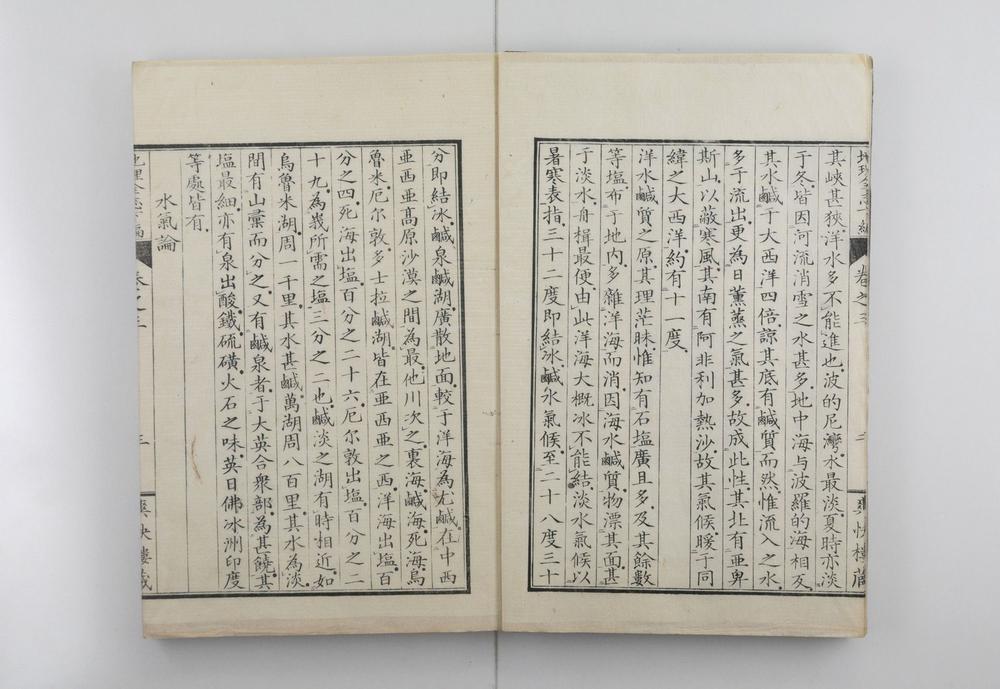 其峽甚狹洋水多不能進也波的尼灣水最淡夏時亦淡
于冬皆因河流消雪之水甚多地中海与波羅的海相反
其水鹹于大西洋四倍諒其底有鹹質而然惟流入之水
多于流出更為日薰蒸之氣甚多故成此性其北有亜卑
斯山以蔽寒風其南有阿非利加熱沙故其氣候暖于同
緯之大西洋約有十一度
洋水鹹質之原其理茫昧惟知有石塩廣且多及其餘數
等塩布于地内多雜洋海而消因海水鹹質物漂其面甚
于淡水舟楫最便由此洋海大概冰不能結淡水氣候以
暑寒表指三十二度即結冰鹹水氣候至二十八度三十
分即結冰鹹泉鹹湖廣散地面較于洋海為尤鹹在中西
亜西亜髙原沙漠之間為最他川次之裏海鹹海死海烏
魯米厄尔敦多士拉鹹湖皆在亜西亜之西洋海出塩百
分之四死海出塩百分之二十六厄尔敦出塩百分之二
十九為我所需之塩三分之二也鹹淡之湖有時相近如
烏魯米湖周一千里其水甚鹹萬湖周八百里其水為淡
間有山彙而分之又有鹹泉者于大英合衆部為甚饒其
塩最細亦有泉出酸鐵硫磺火石之味英日佛冰洲印度
等處皆有
水氣論
卷之三
三
爽快樓蔵